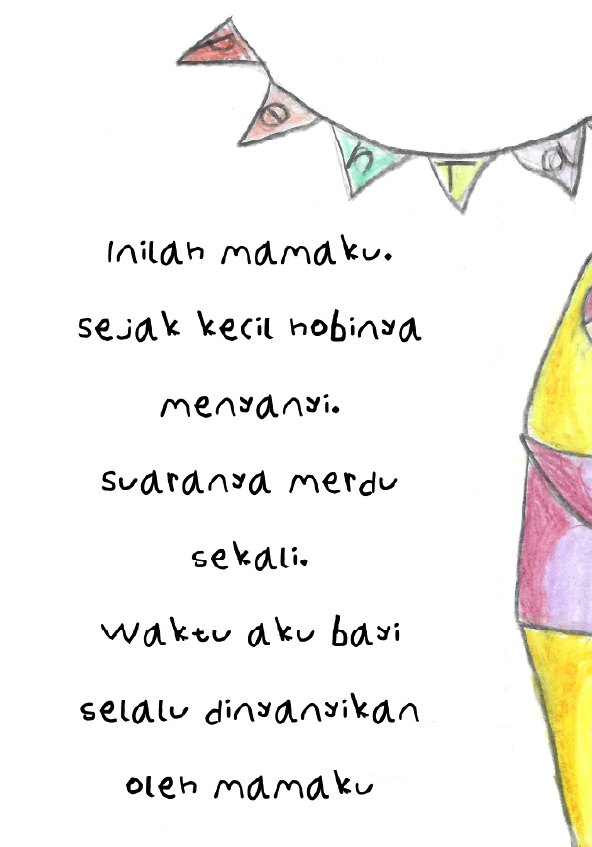 PenTa
Inilah mamaku.
sejak kecil hobinya
menyanyi.
suaranya merdu
sekali.
Waktu aku bayi
selalu dinyanyikan
oleh mamaku